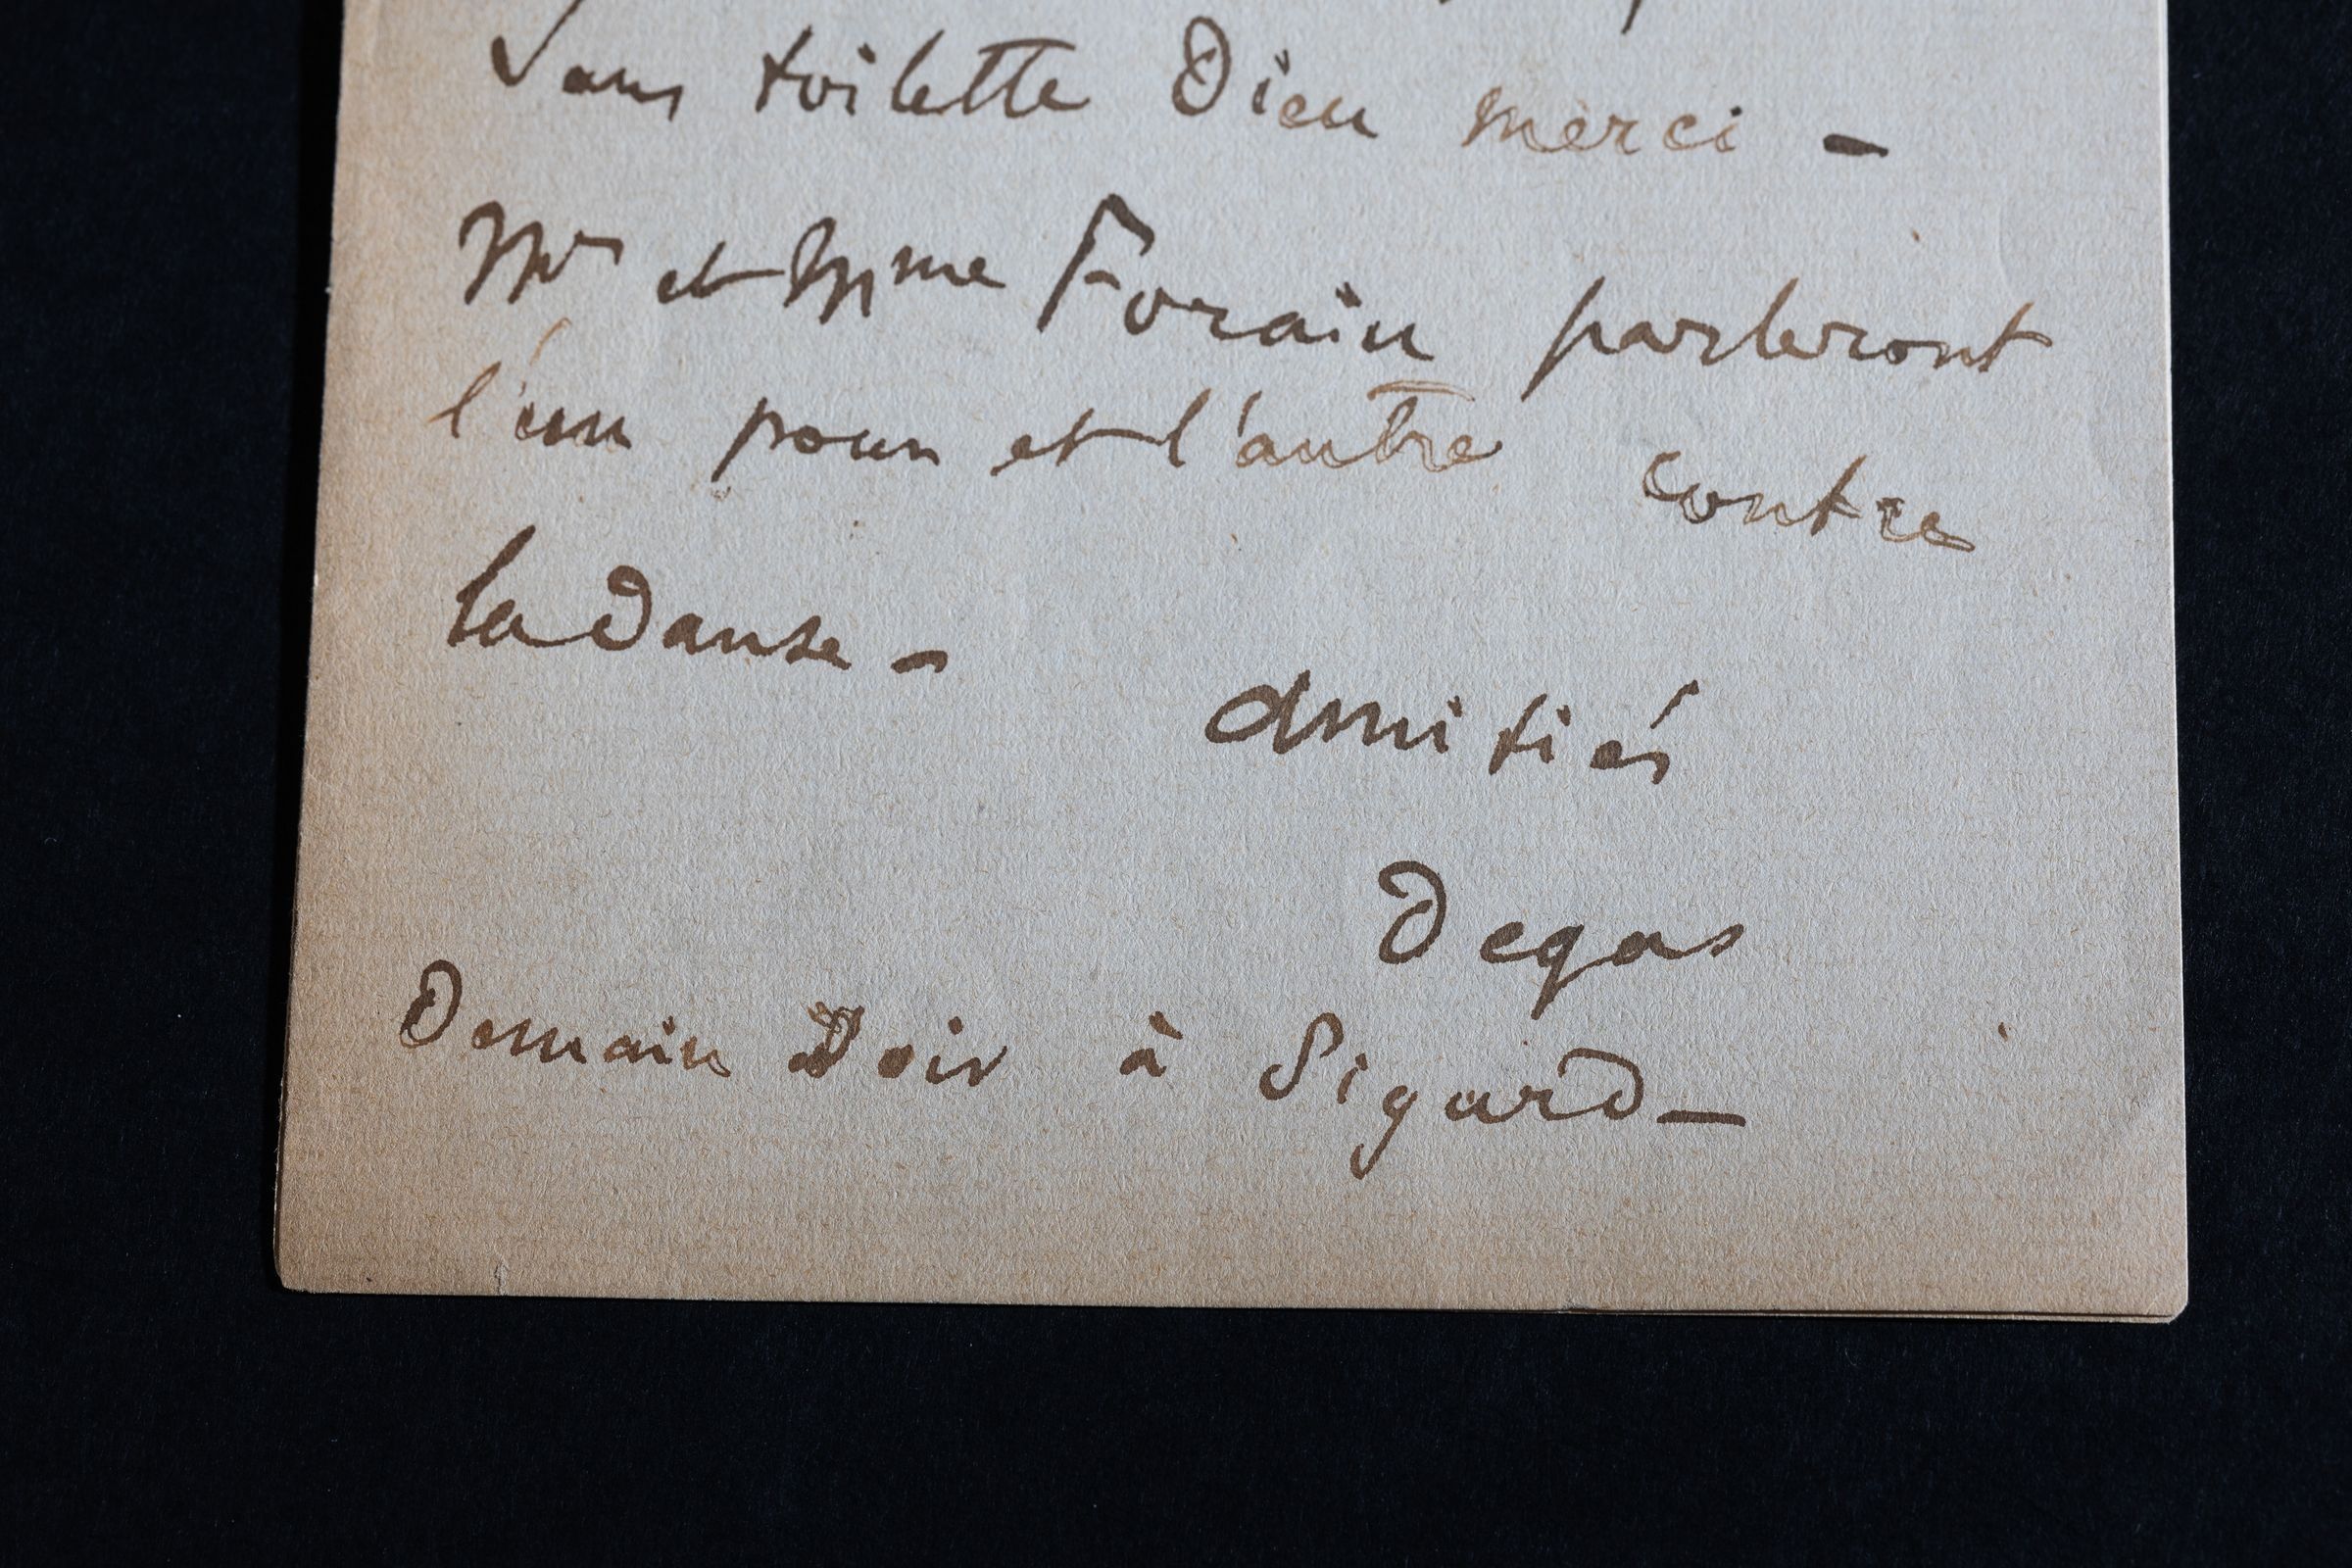 Sans toilette Dieu merci -
Mr et Mme Forain parleront
l'un pour et l'autre contre
la Danse -
Amitiés
Degas
Demain Soir à Sigard -